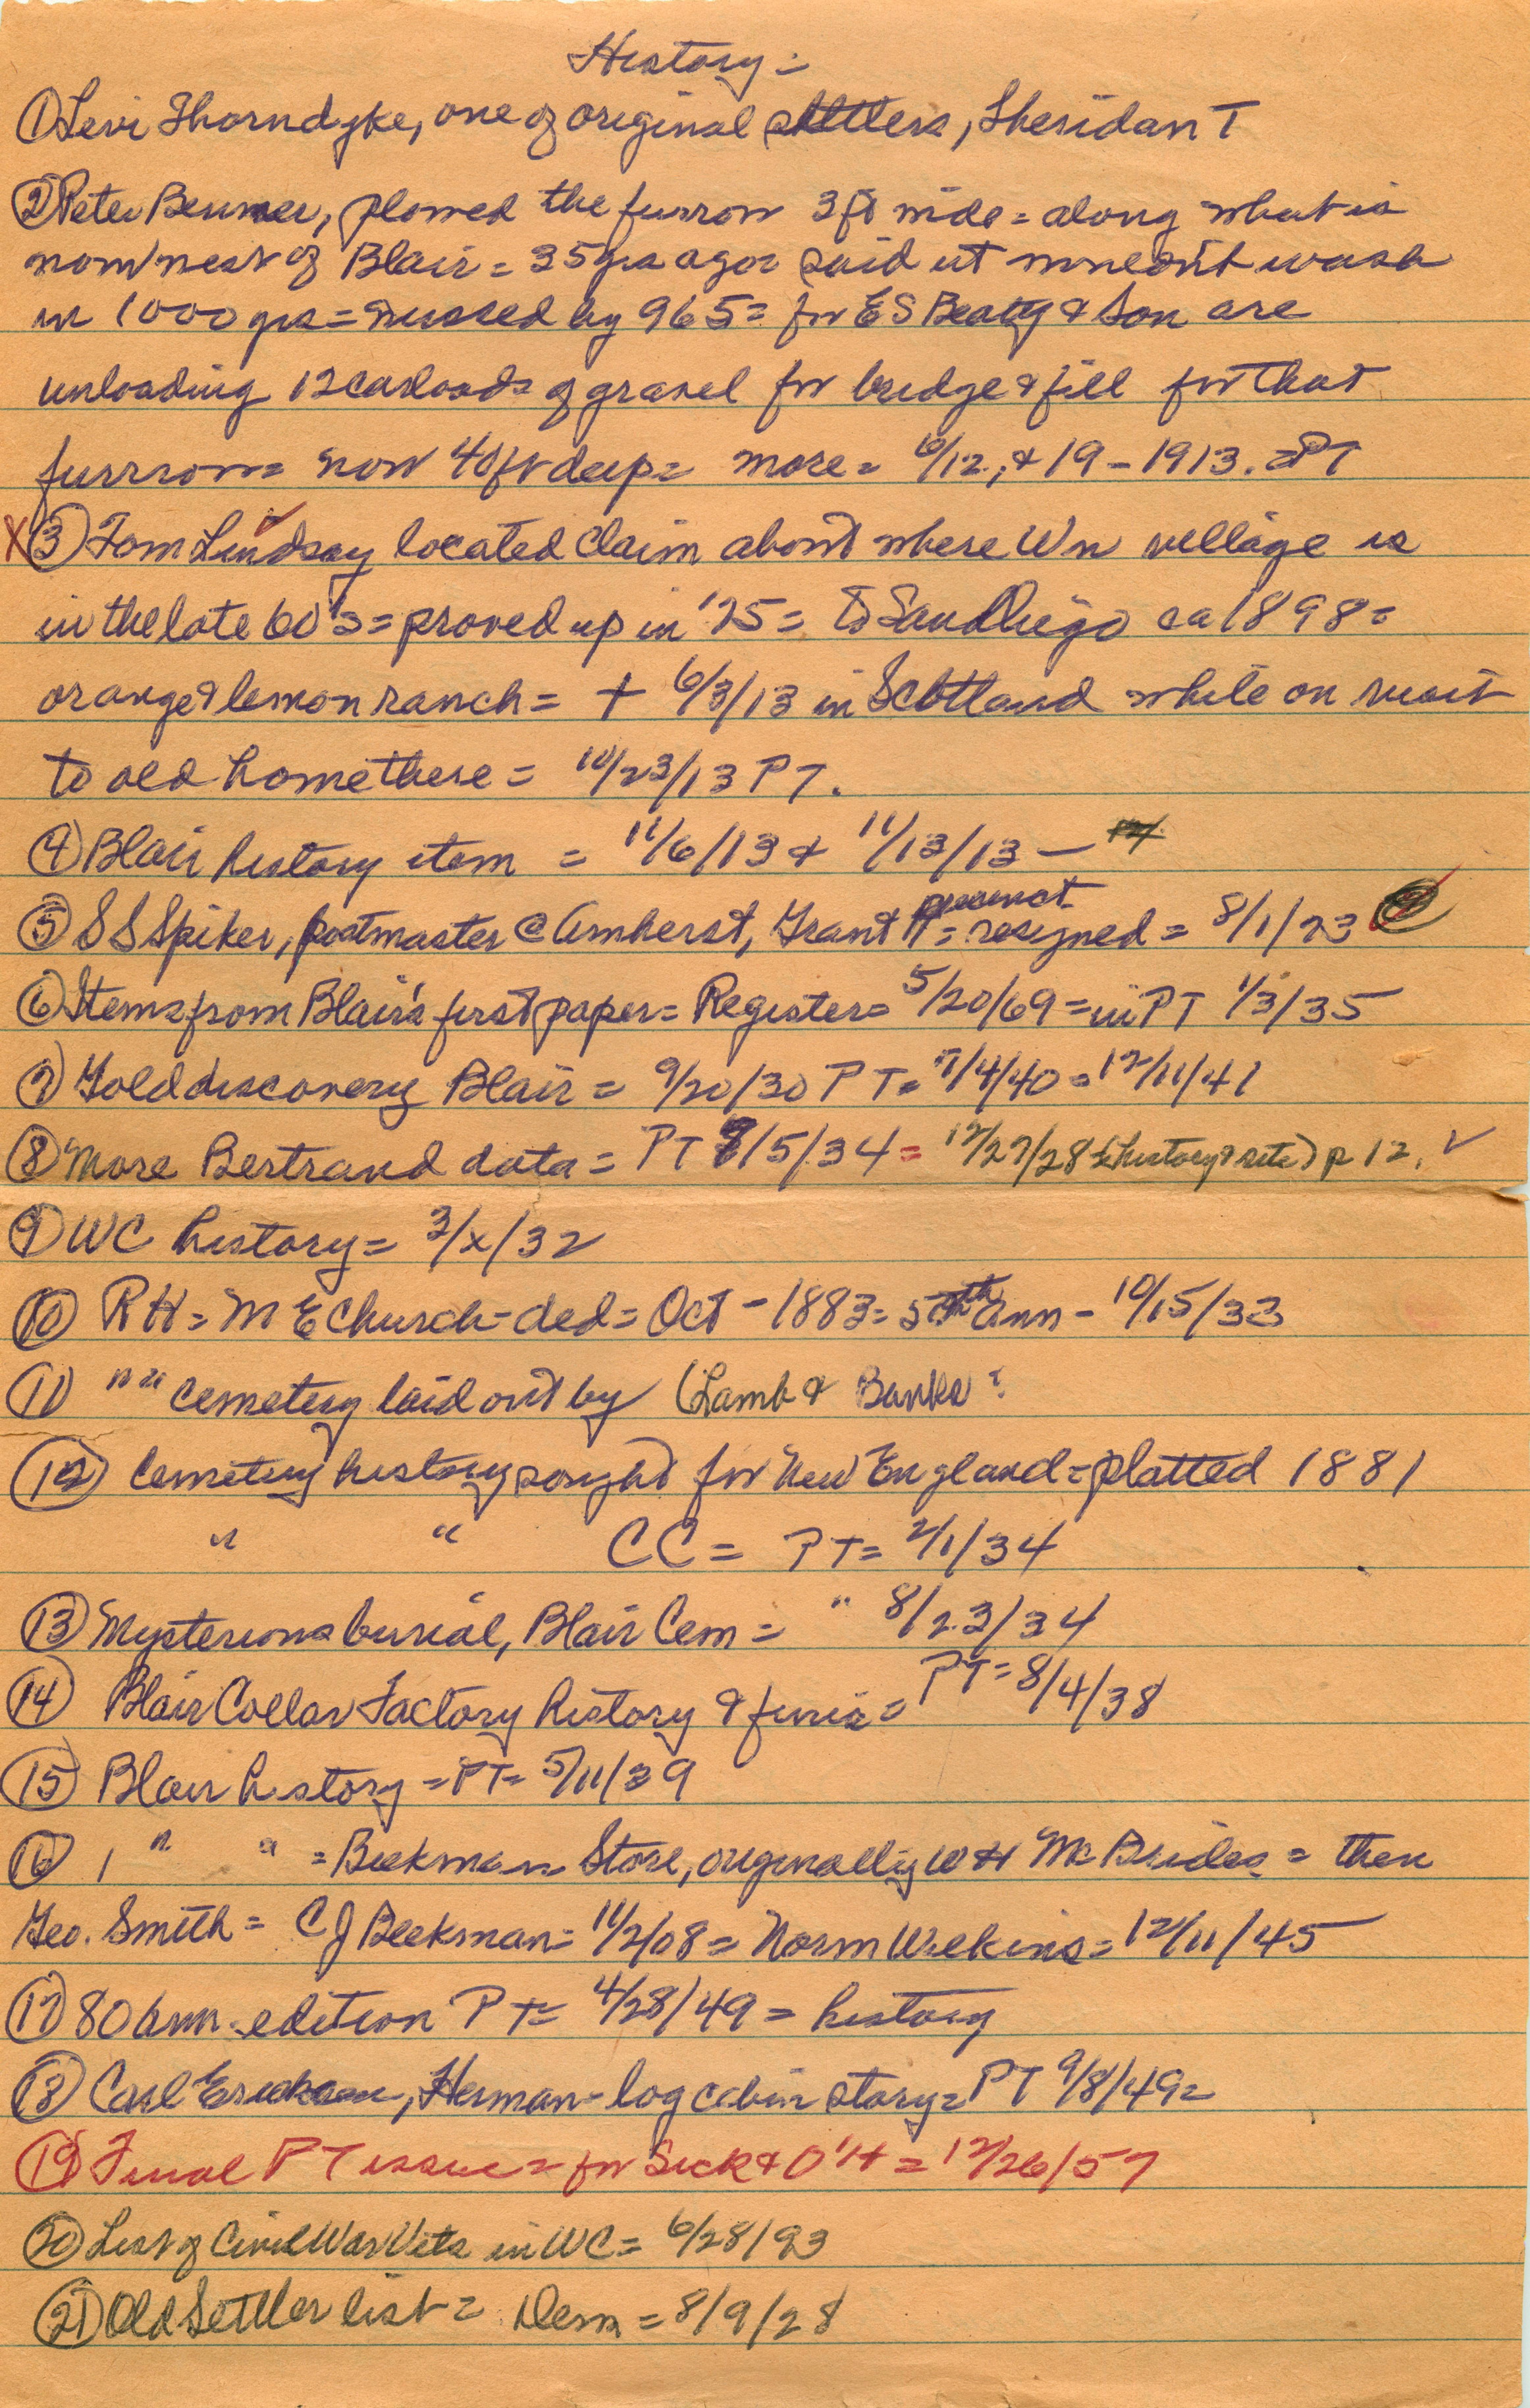 History =
① Levi Thorndyke, one of original settlers, Sheridan T
② Peter Benner, plowed the furrow 3 ft wide = along what is
now west of Blair = 35 yrs ago = said it wouldn't wash
in 1000 yrs = missed by 965 = for E S Beaty & Son are
unloading 12 carloads of gravel for bridge & fill for that
furrrow = now 40 ft deep = more = 6/12, & 19 - 1913. = PT
X ③ Tom Lindsay located claim about where Wn village is
in the late 60's = proved up in '75 = to San Diego ca 1898 =
orange & lemon ranch = + 6/3/13 in Scotland while on visit
to old home there = 10/23/13 PT.
④ Blair history item = 11/6/13 & 11/13/13 -
⑤ S S Spiker, postmaster @ Amherst, Grant precinct = resigned = 8/1/23
⑥ Items from Blair's first paper = Register = 5/20/69 = in PT 1/3/35
⑦ Gold discovery Blair = 9/20/30 PT = 7/4/40 = 12/11/41
⑧ More Bertrand data = PT 7/5/34 = 12/27/28 (history & site) p 12. ✓
⑨ WC history = 3/x/32
⑩ RH = M E Church - ded = Oct - 1883 = 50th Ann - 10/15/33
⑪ " " cemetery laid out by (Lamb & Banks?
⑫ Cemetery history sought for New England = platted 1881
" " CC = PT = 2/1/34
⑬ Mysterious burial, Blair Cem = " 8/23/34
⑭ Blair Collar Factory history & finis = PT = 8/4/38
⑮ Blair history = PT = 5/11/39
⑯ " " = Beekman Store, originally W H McBrides = then
Geo. Smith = C J Beekman = 11/2/08 = Norm Wilkins = 12/11/45
⑰ 80 Ann. edition PT = 4/28/49 = history
⑱ Carl Erickson, Herman - log cabin story = PT 9/8/49 =
⑲ Final PT issue = for Sick & O'H = 12/26/57
⑳ List of Civil War Vets in WC = 6/28/93
㉑ Old Settler list = Dem = 8/9/28